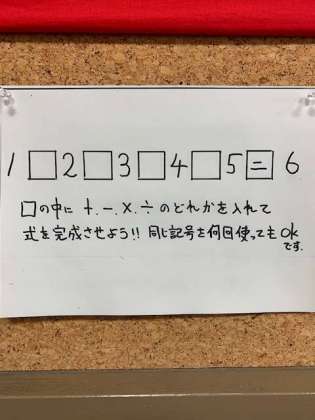 1□2□3□4□5=6
□の中に +.-.×.÷ のどれかを入れて
式を完成させよう!! 同じ記号を何回使ってもOK
です.